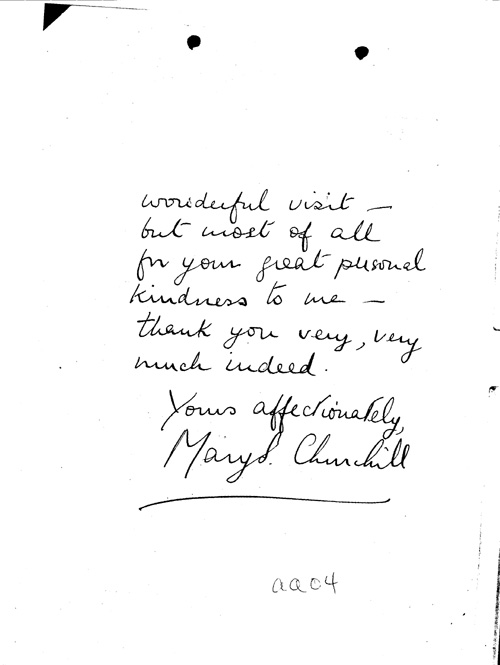 wonderful visit —
but most of all
for your great personal
kindness to me —
thank you very, very
much indeed.
Yours affectionately,
Mary S. Churchill
aa04